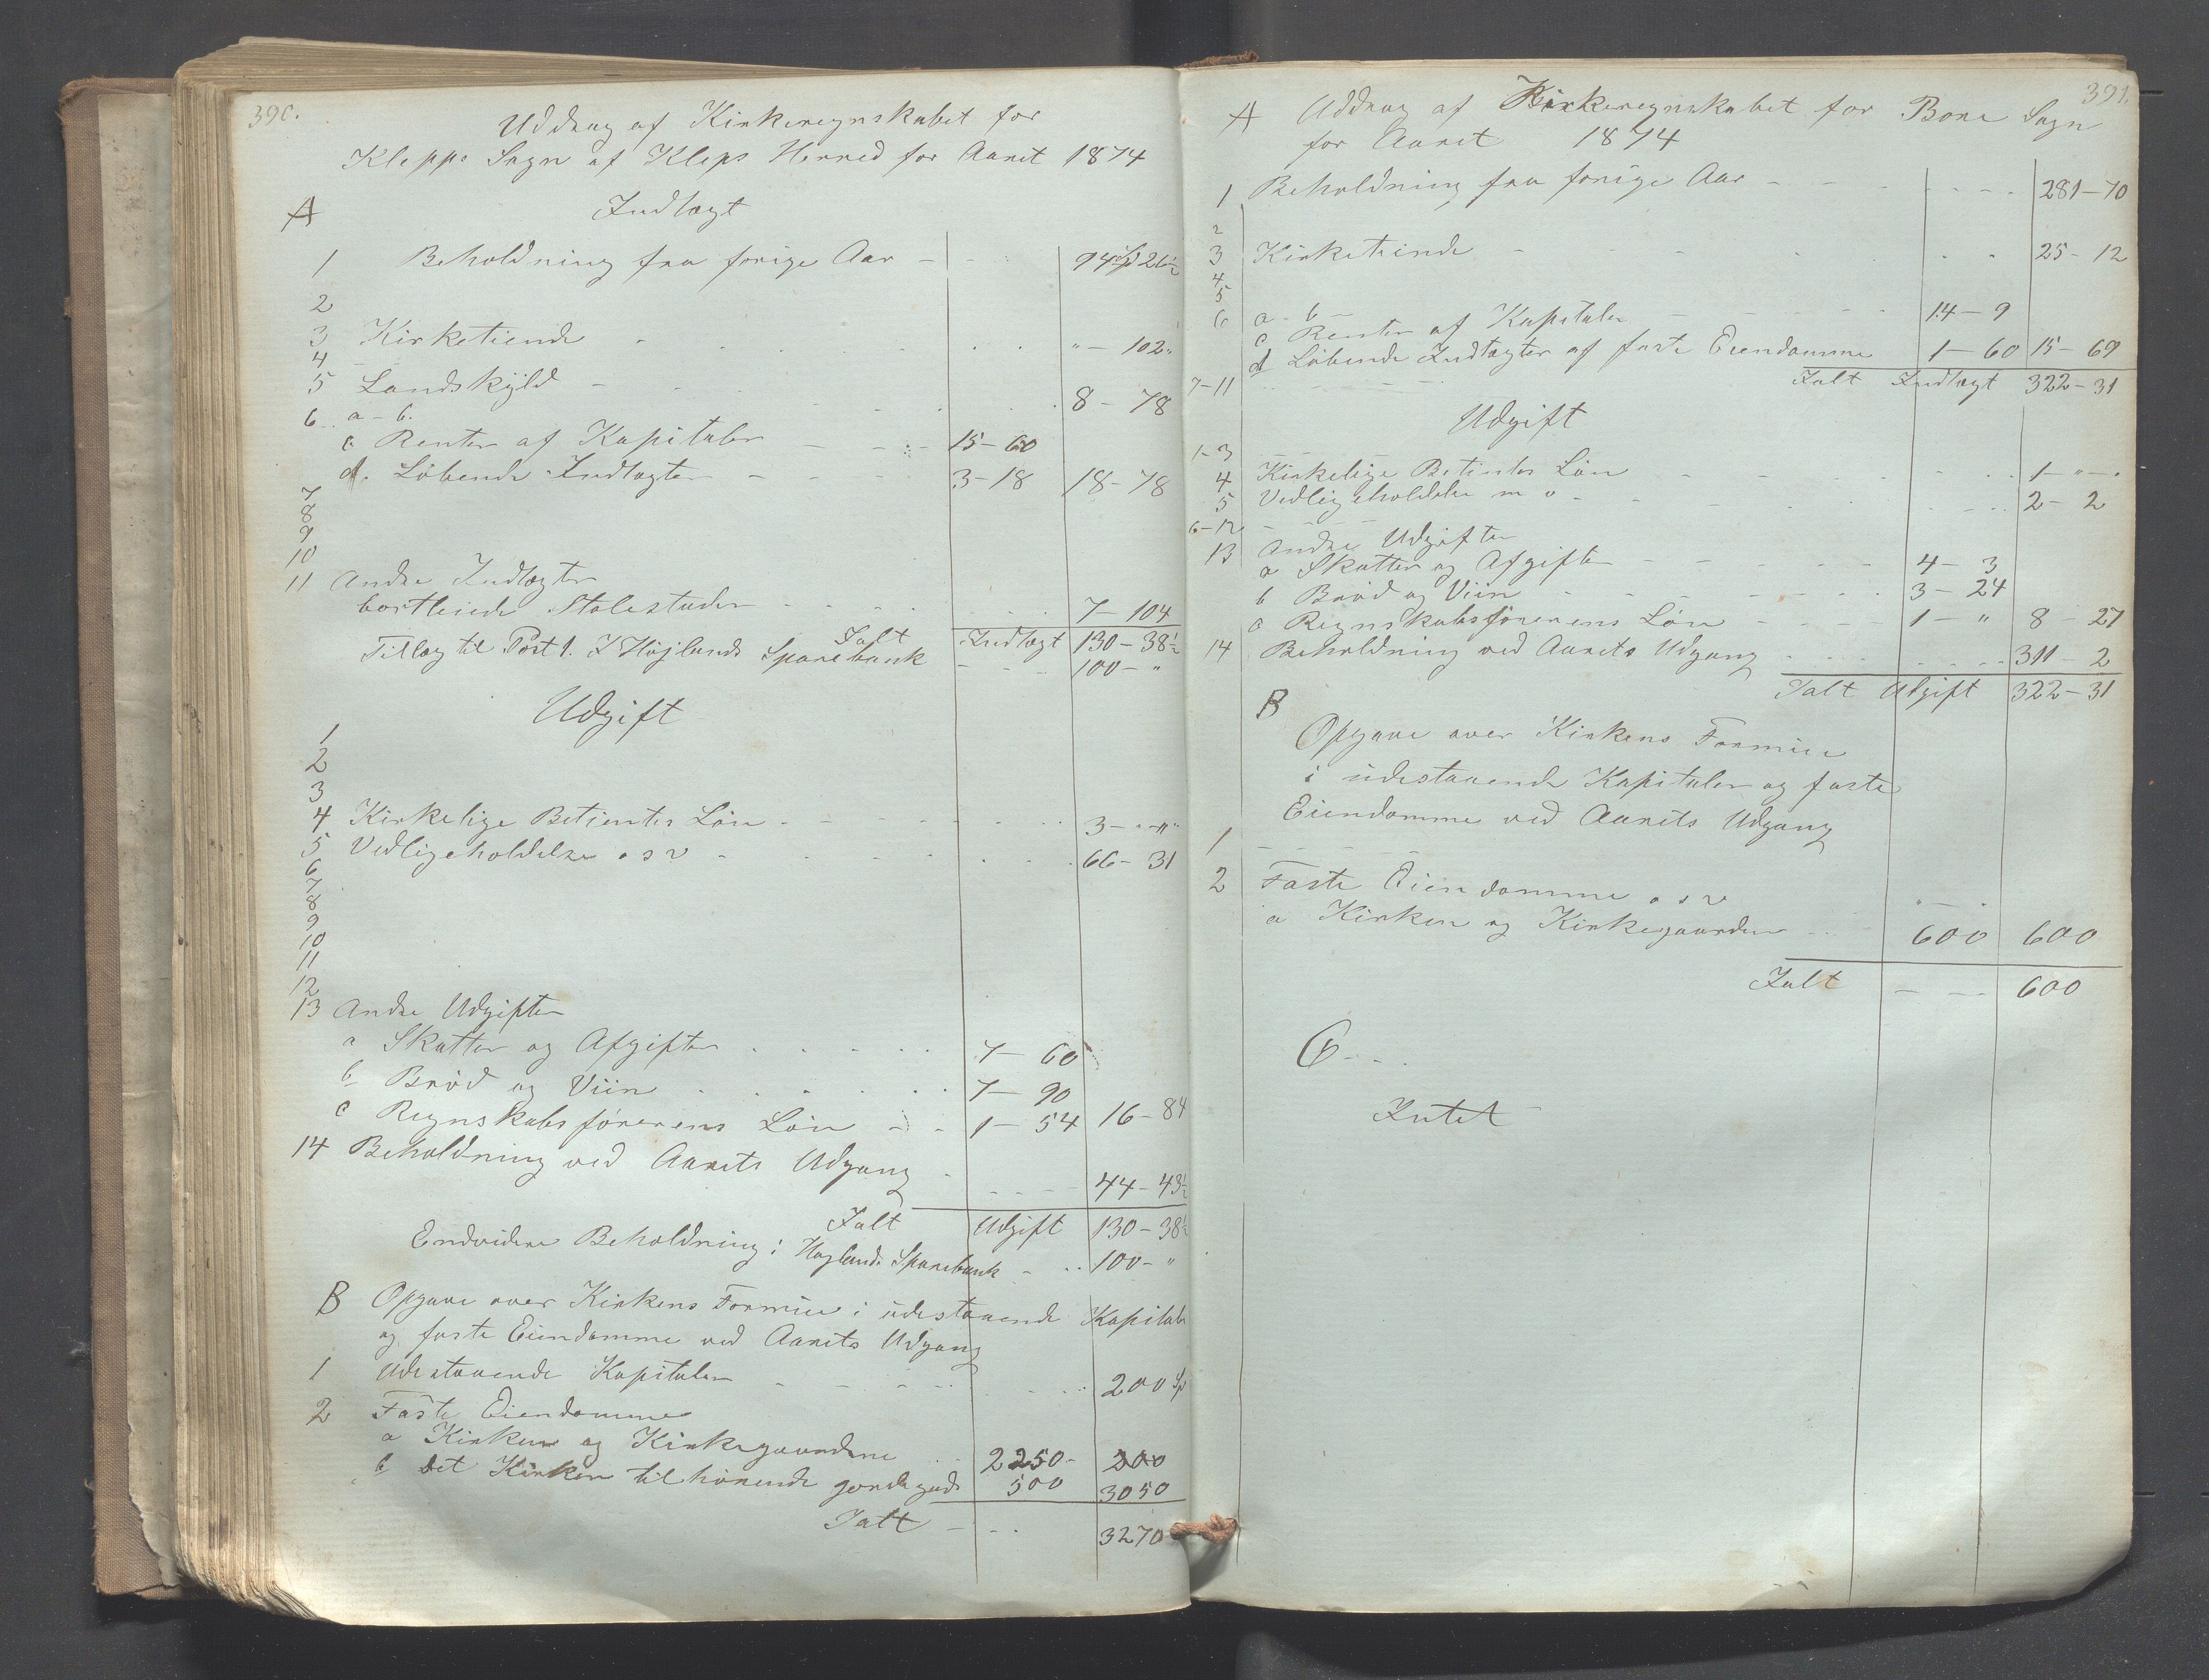 390.
Uddrag af Kirkeregnskabet for
Klepps Sogn af Kleps Herred for Aaret 1874
A Indtægt
1 Beholdning fra forige Aar - - 94 Sp 26½
2
3 Kirketiende " - 102 "
4
5 Landskyld - 8 - 78
6 a - b.
c Renter af Kapitaler - - - 15 - 60
d. Løbende Indtægter - - - 3 - 18 18 - 78
7
8
9
10
11 Andre Indtægter
bortleiede Stolestader 7 - 104
Ialt Indtægt 130 - 38½
Tillæg til Post 1. I Højlands Sparebank - - 100 - "
Udgift
1
2
3
4 Kirkelige Betientes Løn - - - 3 - " - "
5 Vedligeholdelse o s v - - - 66 - 31
6
7
8
9
10
11
12
13 Andre Udgifter
a Skatter og Afgifter 7 - 60
b Brød og Viin 7 - 90
c Regnskabsførerens Løn - - 1 - 54 16 - 84
14 Beholdning ved Aarets Udgang 44 - 43½
Ialt Udgift 130 - 38½
Endvidere Beholdning i Høglands Sparebank - 100 - "
B Opgave over Kirkens Formue i udestaaende Kapitaler
og faste Eiendomme ved Aarets Udgang
1 Udestaaende Kapitaler - - - 200 Sp
2 Faste Eiendomme
a Kirken og Kirkegaardene 2250 - 200
b det Kirken tilhørende jordegods 500 3050
Ialt - - 3270
391.
A Uddrag af Kirkeregnskabet for Bore Sogn
for Aaret 1874
1 Beholdning fra forige Aar - - - 281 - 70
2
3 Kirketiende - - - 25 - 12
4
5
6 a - b -
c Renter af Kapitaler - - - 14 - 9
d Løbende Indtægter af faste Eiendomme 1 - 60 15 - 69
7-11 Ialt Indtægt 322 - 31
Udgift
1-3
4 Kirkelige Betientes Løn - - - 1 - " -
5 Vedligeholdelse m v - - - 2 - 2
6-12
13 Andre Udgifter
a Skatter og Afgifter - - - 4 - 3
b Brød og Viin - - - 3 - 24
c Regnskabsførerens Løn - - - 1 - " 8 - 27
14 Beholdning ved Aarets Udgang 311 - 2
Ialt Udgift 322 - 31
B
Opgave over Kirkens Formue
i udestaaende Kapitaler og faste
Eiendomme ved Aarets Udgang
1 - - -
2 Faste Eiendomme o s v
a Kirken og Kirkegaarden 600 600
Ialt - - 600
C - -
Intet